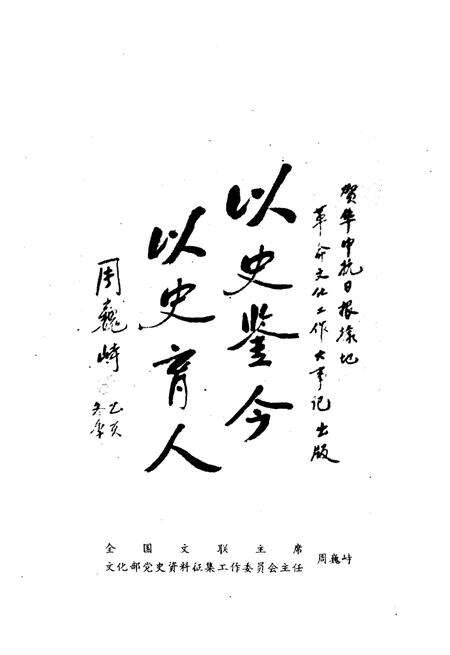 贺华中抗日根据地
革命文化工作大事记出版
以史鉴今
以史育人
周巍峙
乙亥
冬季
全国文联主席
文化部党史资料征集工作委员会主任
周巍峙